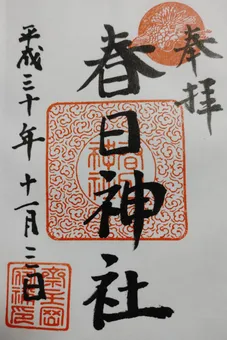 奉拝
春日神社
平成三十年十一月三日